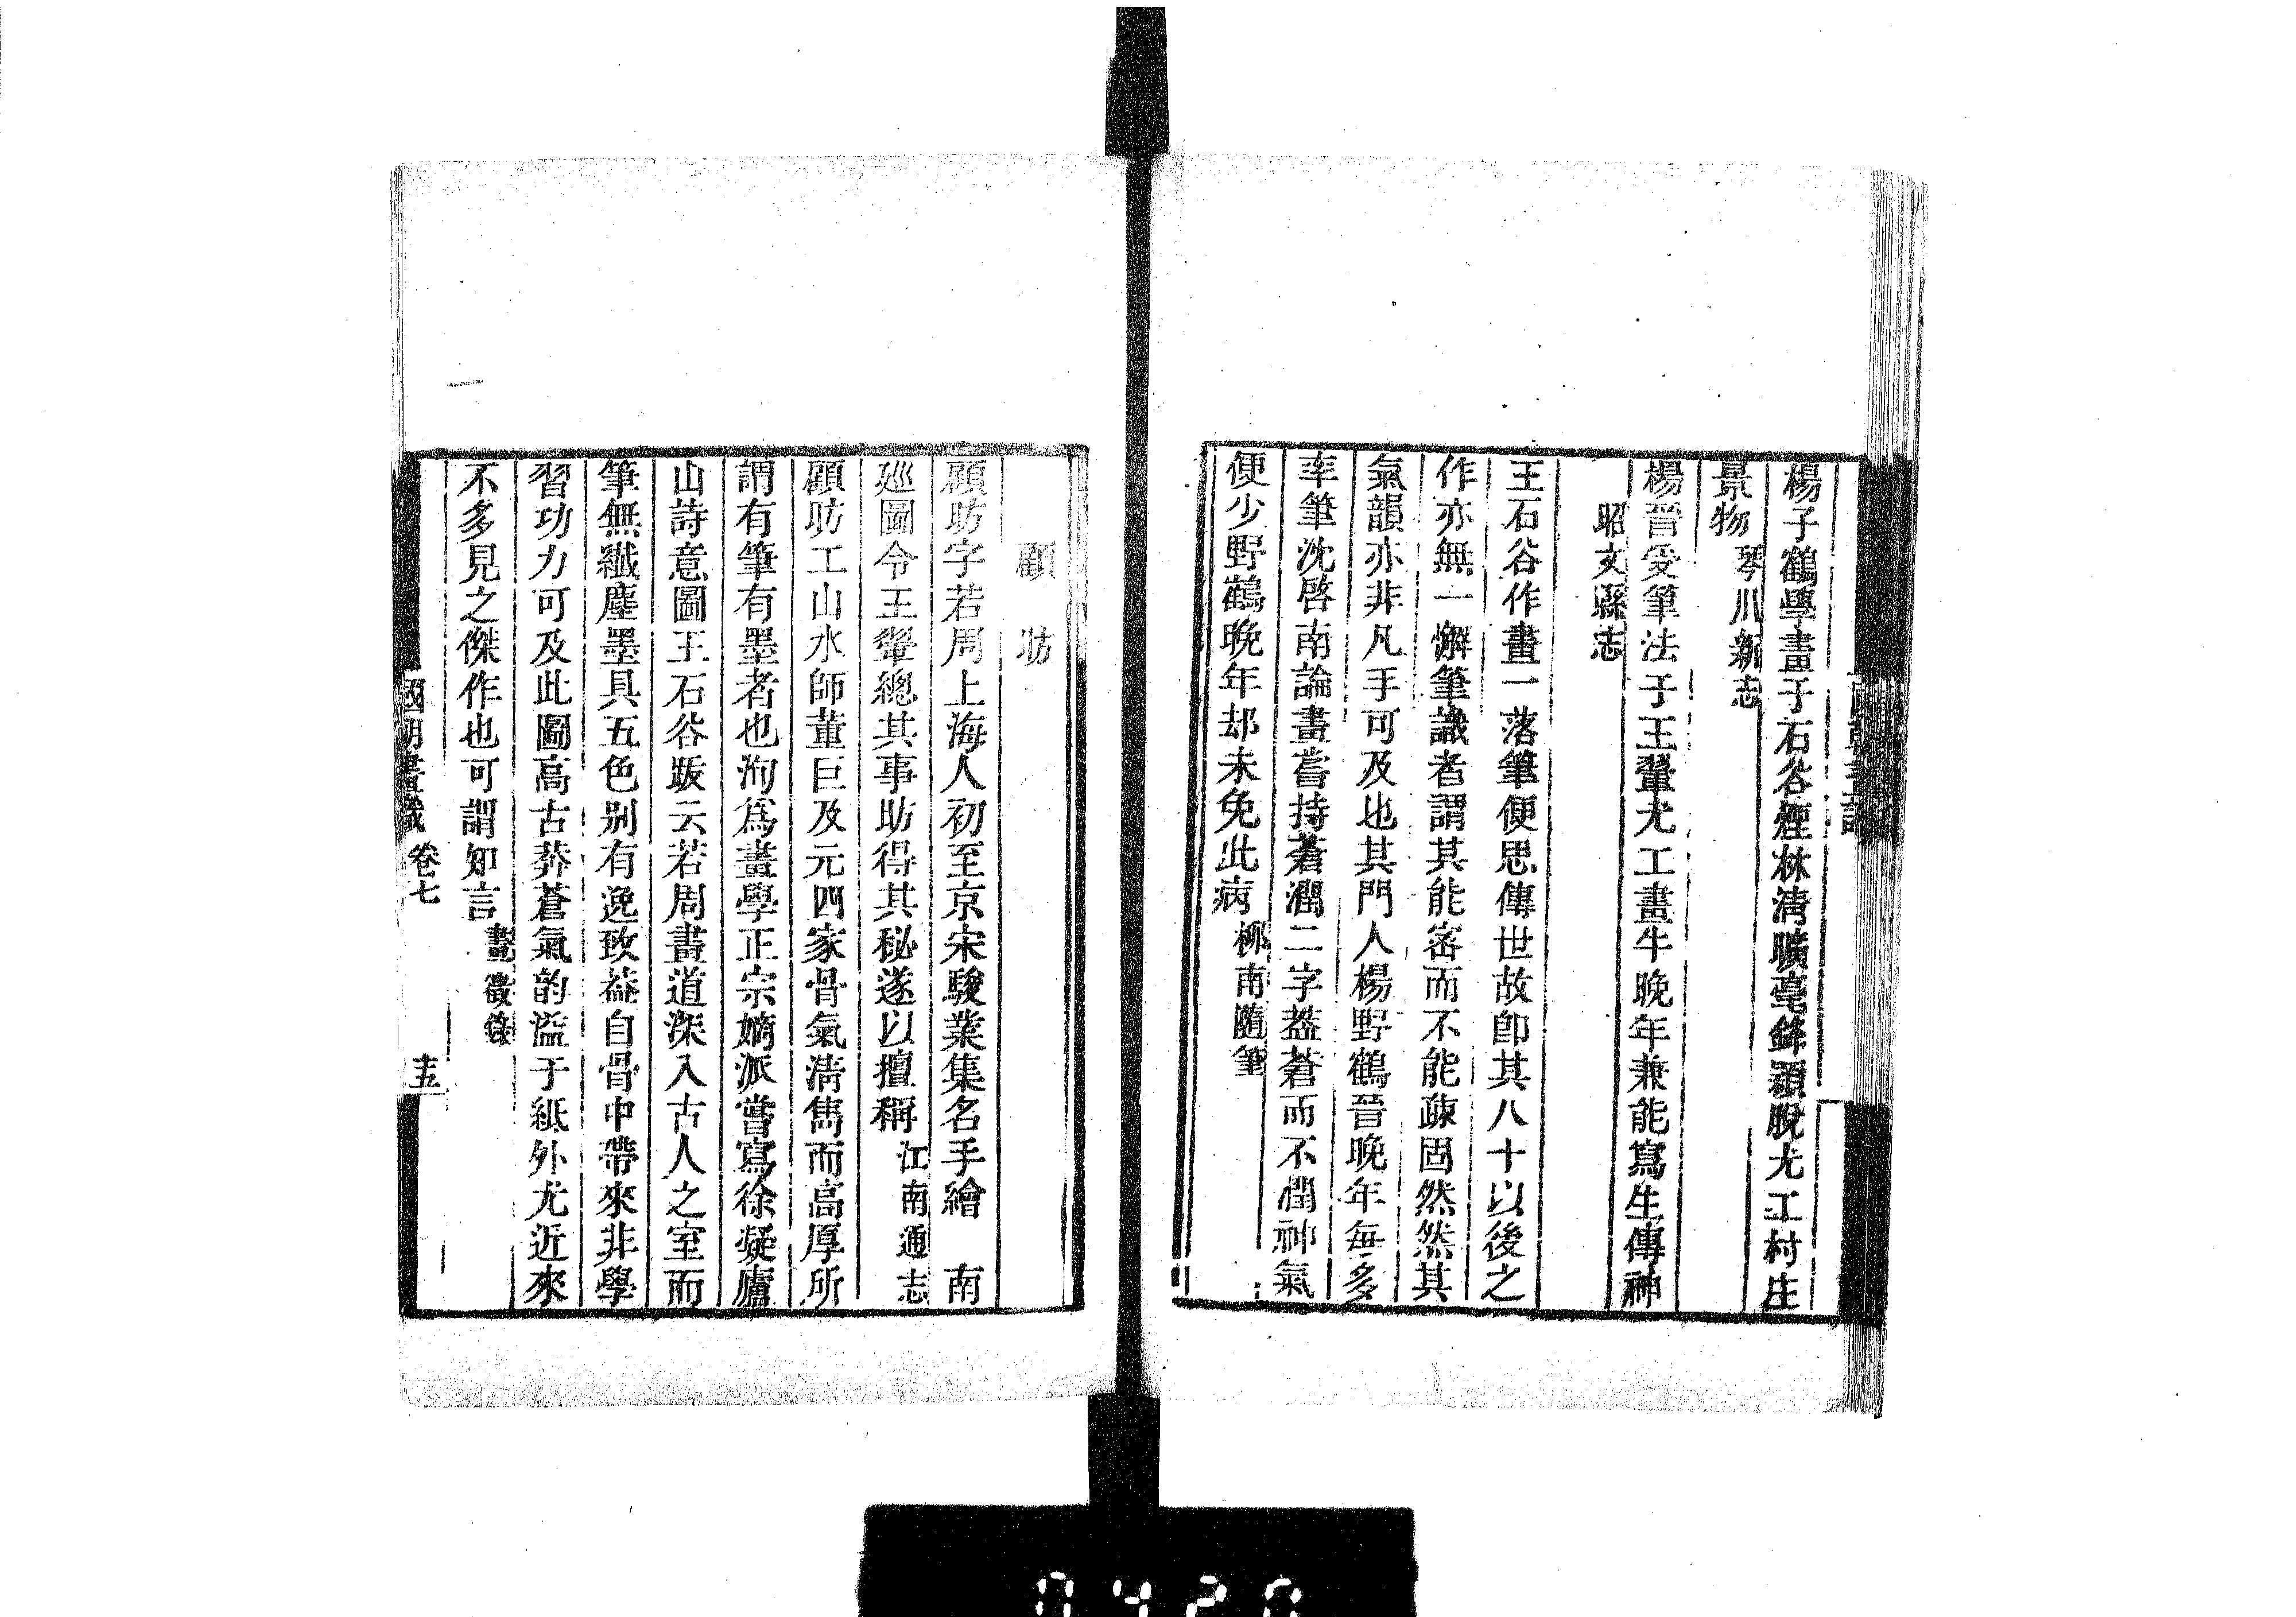 楊子鶴學畫于石谷煙林清曠毫鋒穎脫尤工村庄
景物 琴川新志
楊晉受筆法于王翬尤工畫牛晚年兼能寫生傳神
昭文縣志
王石谷作畫一落筆便思傳世故卽其八十以後之
作亦無一懈筆識者謂其能密而不能疎固然然其
氣韻亦非凡手可及也其門人楊野鶴晉晚年每多
率筆沈啓南論畫嘗持蒼潤二字葢蒼而不潤神氣
便少野鶴晚年却未免此病 柳南隨筆
顧昉
顧昉字若周上海人初至京宋駿業集名手繪 南
廵圖令王翬總其事昉得其秘遂以擅稱 江南通志
顧昉工山水師董巨及元四家骨氣淸雋而高厚所
謂有筆有墨者也洵爲畫學正宗嫡派嘗寫徐凝廬
山詩意圖王石谷跋云若周畫道深入古人之室而
筆無纖塵墨具五色别有逸致葢自骨中帶來非學
習功力可及此圖高古莽蒼氣韵溢于紙外尤近來
不多見之傑作也可謂知言 畫徵錄
國朝畫識 卷七 十五
0420